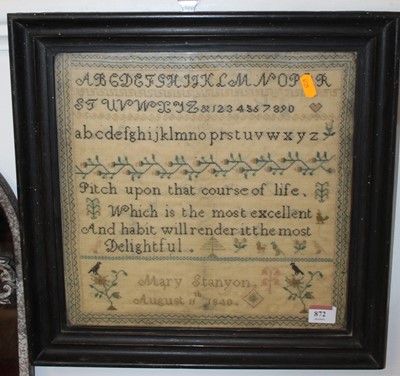 ABCDEFGHIJKLMNOPQR
STUVWXYZ&1234567890
abcdefghijklmnoprstuvwxyz
Pitch upon that course of life,
Which is the most excellent
And habit will render it the most
Delightful.
Mary Stanyon,
August 11th 1840.
872